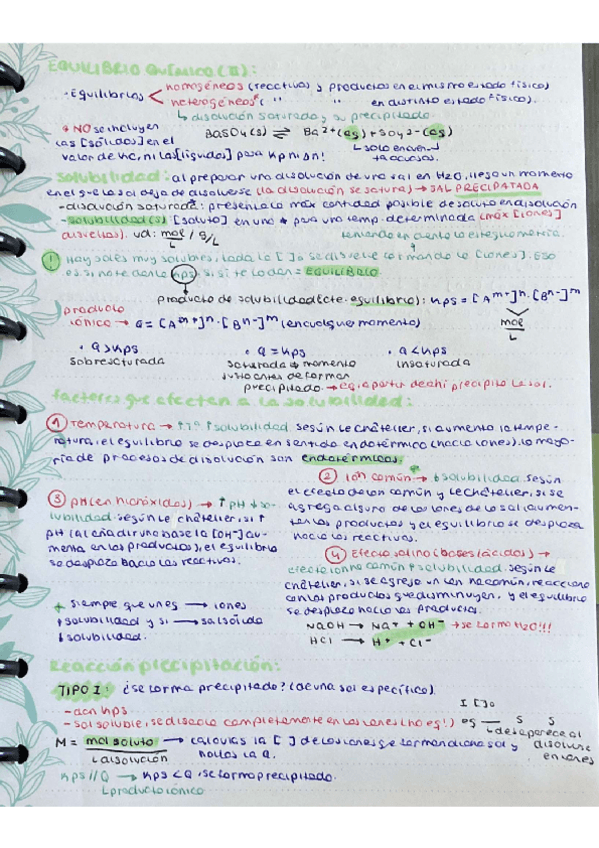 EQUILIBRIO QUÍMICO (II):
· Equilibrios < homogéneos (reactivos y productos en el mismo estado físico)
heterogéneos* ( " " en distinto estado físico).
↳ disolución saturada y su precipitado.
* NO se incluyen BaSO4(s) ⇌ Ba2+(aq) + SO4 2-(aq)
las [sólidos] en el ↳ solo en
valor de Kc, ni las [líquidos] para Kp ni Δn!
Solubilidad: al preparar una disolución de una sal en H2O, llega un momento
en el que la sal deja de disolverse (la disolución se satura) → SAL PRECIPITADA
- disolución saturada: presenta la máx cantidad posible de soluto en disolución
- solubilidad(s) [soluto] en una * para una temp. determinada (máx [iones]
disueltos). ud: mol/L / g/L teniendo en cuenta la estequiometría.
! Hay sales muy solubres, toda la [ ]o se disuelve formando la [iones]. Eso
es si no te dan la Kps. si si te lo dan = EQUILIBRIO.
producto de solubilidad (cte. equilibrio): Kps = [Am+]n · [Bn-]m
producto
iónico → Q = [Am+]n · [Bn-]m (en cualquier momento) mol/L
· Q > Kps · Q = Kps · Q < Kps
sobresaturada saturada momento insaturada
justo antes de formar
precipitado → eq. a partir de ahí precipita la sal.
factores que afectan a la solubilidad:
1 Temperatura → ↑Tº ↑solubilidad. Según Le Châtelier, si aumenta la tempe-
ratura, el equilibrio se desplaza en sentido endotérmico (hacia iones). La mayo-
ría de procesos de disolución son endotérmicos.
2 Ion común → ↓solubilidad. Según
el efecto de ion común y Le Châtelier, si se
agrega alguno de los iones de la sal, aumen-
tan los productos y el equilibrio se desplaza
hacia los reactivos.
3 pH (en hidróxidos) → ↑pH ↓so-
lubilidad. Según Le Châtelier, si ↑
pH (al añadir una base la [OH-] au-
menta en los productos), el equilibrio
se desplaza hacia los reactivos.
4 Efecto salino (bases/ácidos) →
efecto ion no común ↑solubilidad. Según Le
Châtelier, si se agrega un ion no común, reacciona
con los productos que disminuyen, y el equilibrio
se desplaza hacia los productos.
NaOH → Na+ + OH- → se forma H2O!!!
HCl → H+ + Cl-
* siempre que unes → iones
↑solubilidad y si → sal sólida
↓solubilidad.
Reacción precipitación:
TIPO I: ¿se forma precipitado? (de una sal específico).
- dan Kps
- sal soluble, se disocia completamente en los iones (no eq!)
I [ ]o
eq — S S
↳ desaparece al disolverse en iones
M = mol soluto / L disolución → calculas la [ ] de los iones que forman dicha sal y
hallas la Q.
Kps // Q → Kps < Q, se forma precipitado.
↳ producto iónico